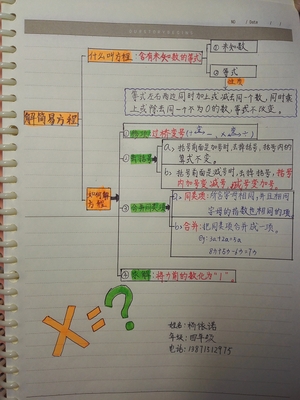 解简易方程
什么叫方程:含有未知数的等式
①未知数
②等式
性质
等式左右两边同时加上或减去同一个数,同时乘
上或除去同一个不为0的数,等式不改变。
如何解
方程
过桥变号
a,括号前面是加号时,去掉括号,括号内的
算式不变。
b,括号前面是减号时,去掉括号,括号
内加号变减号,减号变加号。
③合并同类项
a:同类项:所含字母相同,并且相同
字母的指数也相同的项
b:合并:把同类项合并成一项。
3a+2a=5a
将x前的系数化为“1”。
X=?
姓名:
年级:四年级
电话:13871512975